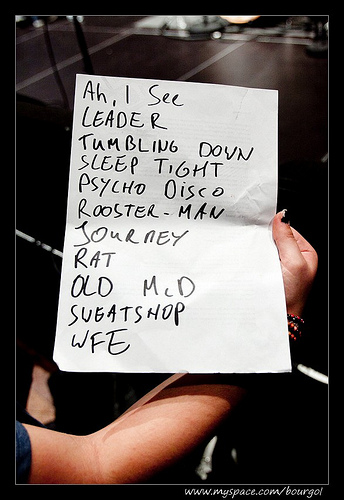 Ah, I See
LEADER
TUMBLING DOWN
SLEEP TIGHT
PSYCHO DISCO
ROOSTER-MAN
JOURNEY
RAT
OLD McD
SWEATSHOP
WFE
www.myspace.com/bourgol